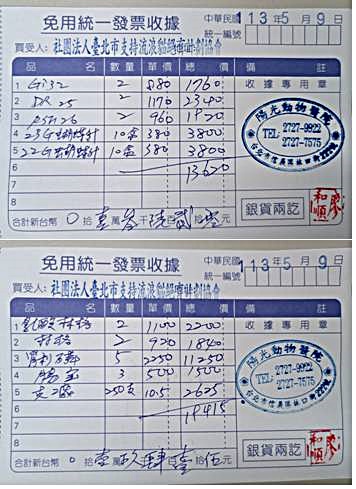 免用統一發票收據
中華民國 113年5月9日
統一編號
買受人: 社團法人臺北市支持流浪貓絕育計劃協會
品名 數量 單價 總價 備註
1 GI32 2 880 1760
2 25 2 1170 2340
3 2 960 1920
4 23G 10盒 380 3800
5 22G 10盒 380 3800
6 13620
7
8
收據專用章
陽光動物醫院
TEL: 2727-9922
2727-7575
銀貨兩訖
合計新台幣 0拾壹萬參千陸百貳拾元
免用統一發票收據
中華民國 113年5月9日
統一編號
買受人: 社團法人臺北市支持流浪貓絕育計劃協會
品名 數量 單價 總價 備註
1 2 1100 2200
2 2 920 1840
3 5 2250 11250
4 3 500 1500
5 250支 10.5 2625
6 19415
7
8
收據專用章
陽光動物醫院
TEL: 2727-9922
2727-7575
銀貨兩訖
合計新台幣 0拾壹萬玖千肆百壹拾伍元